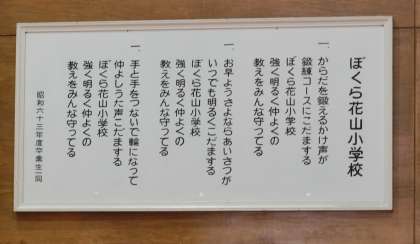 ぼくら花山小学校
一、からだを鍛えるかけ声が
鍛錬コースにこだまする
ぼくら花山小学校
強く明るく仲よくの
教えをみんな守ってる
一、お早ようさよならあいさつが
いつでも明るくこだまする
ぼくら花山小学校
強く明るく仲よくの
教えをみんな守ってる
一、手と手をつないで輪になって
仲よしうた声こだまする
ぼくら花山小学校
強く明るく仲よくの
教えをみんな守ってる
昭和六十三年度卒業生一同